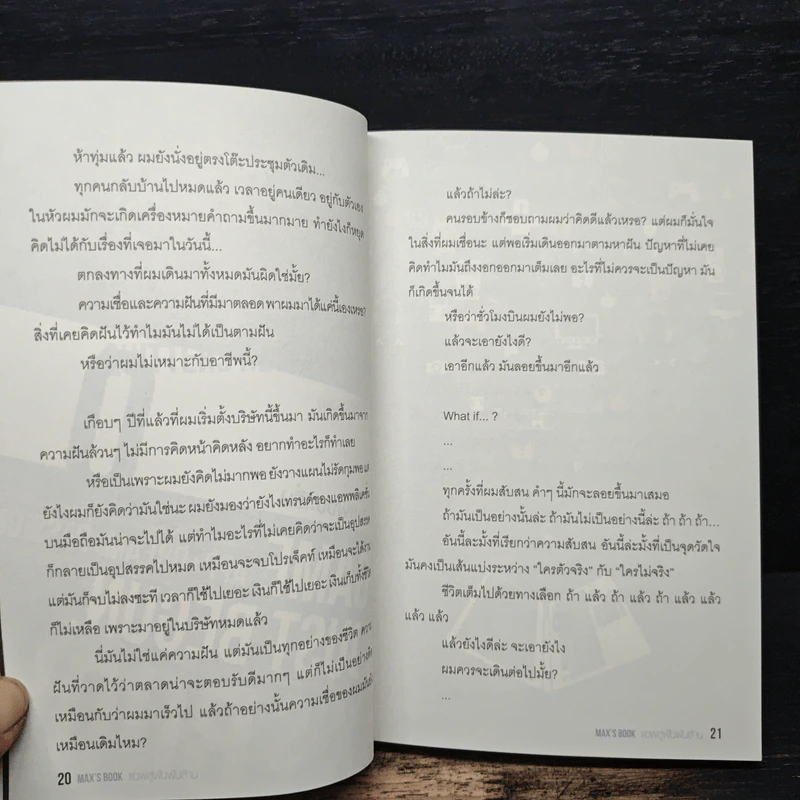 ห้าทุ่มแล้ว ผมยังนั่งอยู่ตรงโต๊ะประชุมตัวเดิม...
ทุกคนกลับบ้านไปหมดแล้ว เวลาอยู่คนเดียว อยู่กับตัวเอง
ในหัวผมมักจะเกิดเครื่องหมายคำถามขึ้นมากมาย ทำยังไงก็หยุด
คิดไม่ได้กับเรื่องที่เจอมาในวันนี้...
ตกลงทางที่ผมเดินมาทั้งหมดมันผิดใช่มั้ย?
ความเชื่อและความฝันที่มีมาตลอด พาผมมาได้แค่นี้เองเหรอ?
สิ่งที่เคยคิดฝันไว้ทำไมมันไม่ได้เป็นตามฝัน
หรือว่าผมไม่เหมาะกับอาชีพนี้?
เกือบๆ ปีที่แล้วที่ผมเริ่มตั้งบริษัทนี้ขึ้นมา มันเกิดขึ้นมาจาก
ความฝันล้วนๆ ไม่มีการคิดหน้าคิดหลัง อยากทำอะไรก็ทำเลย
หรือเป็นเพราะผมยังคิดไม่มากพอ ยังวางแผนไม่รัดกุมพอ แต่
ยังไงผมก็ยังคิดว่ามันใช่นะ ผมยังมองว่ายังไงเทรนด์ของแอพพลิเคชั่น
บนมือถือมันน่าจะไปได้ แต่ทำไมอะไรที่ไม่เคยคิดว่าจะเป็นอุปสรรค
ก็กลายเป็นอุปสรรคไปหมด เหมือนจะจบโปรเจ็คท์ เหมือนจะได้งาน
แต่มันก็จบไม่ลงซะที เวลาก็ใช้ไปเยอะ เงินก็ใช้ไปเยอะ เงินเก็บทั้งชีวิต
ก็ไม่เหลือ เพราะมาอยู่ในบริษัทหมดแล้ว
นี่มันไม่ใช่แค่ความฝัน แต่มันเป็นทุกอย่างของชีวิต ความ
ฝันที่วาดไว้ว่าตลาดน่าจะตอบรับดีมากๆ แต่ก็ไม่เป็นอย่างที่คิด
เหมือนกับว่าผมมาเร็วไป แล้วถ้าอย่างนั้นความเชื่อของผมมันยัง
เหมือนเดิมไหม?
20 MAX'S BOOK
แล้วถ้าไม่ล่ะ?
คนรอบข้างก็ชอบถามผมว่าคิดดีแล้วเหรอ? แต่ผมก็มั่นใจ
ในสิ่งที่ผมเชื่อนะ แต่พอเริ่มเดินออกมาตามหาฝัน ปัญหาที่ไม่เคย
คิดทำไมมันถึงงอกออกมาเต็มเลย อะไรที่ไม่ควรจะเป็นปัญหา มัน
ก็เกิดขึ้นจนได้
หรือว่าชั่วโมงบินผมยังไม่พอ?
แล้วจะเอายังไงดี?
เอาอีกแล้ว มันลอยขึ้นมาอีกแล้ว
What if... ?
...
...
ทุกครั้งที่ผมสับสน คำๆ นี้มักจะลอยขึ้นมาเสมอ
ถ้ามันเป็นอย่างนั้นล่ะ ถ้ามันไม่เป็นอย่างนี้ล่ะ ถ้า ถ้า ถ้า...
อันนี้ล่ะมั้งที่เรียกว่าความสับสน อันนี้ล่ะมั้งที่เป็นจุดวัดใจ
มันคงเป็นเส้นแบ่งระหว่าง “ใครตัวจริง” กับ “ใครไม่จริง”
ชีวิตเต็มไปด้วยทางเลือก ถ้า แล้ว ถ้า แล้ว ถ้า แล้ว แล้ว
แล้ว แล้ว
แล้วยังไงดีล่ะ จะเอายังไง
ผมควรจะเดินต่อไปมั้ย?
...
MAX'S BOOK 21